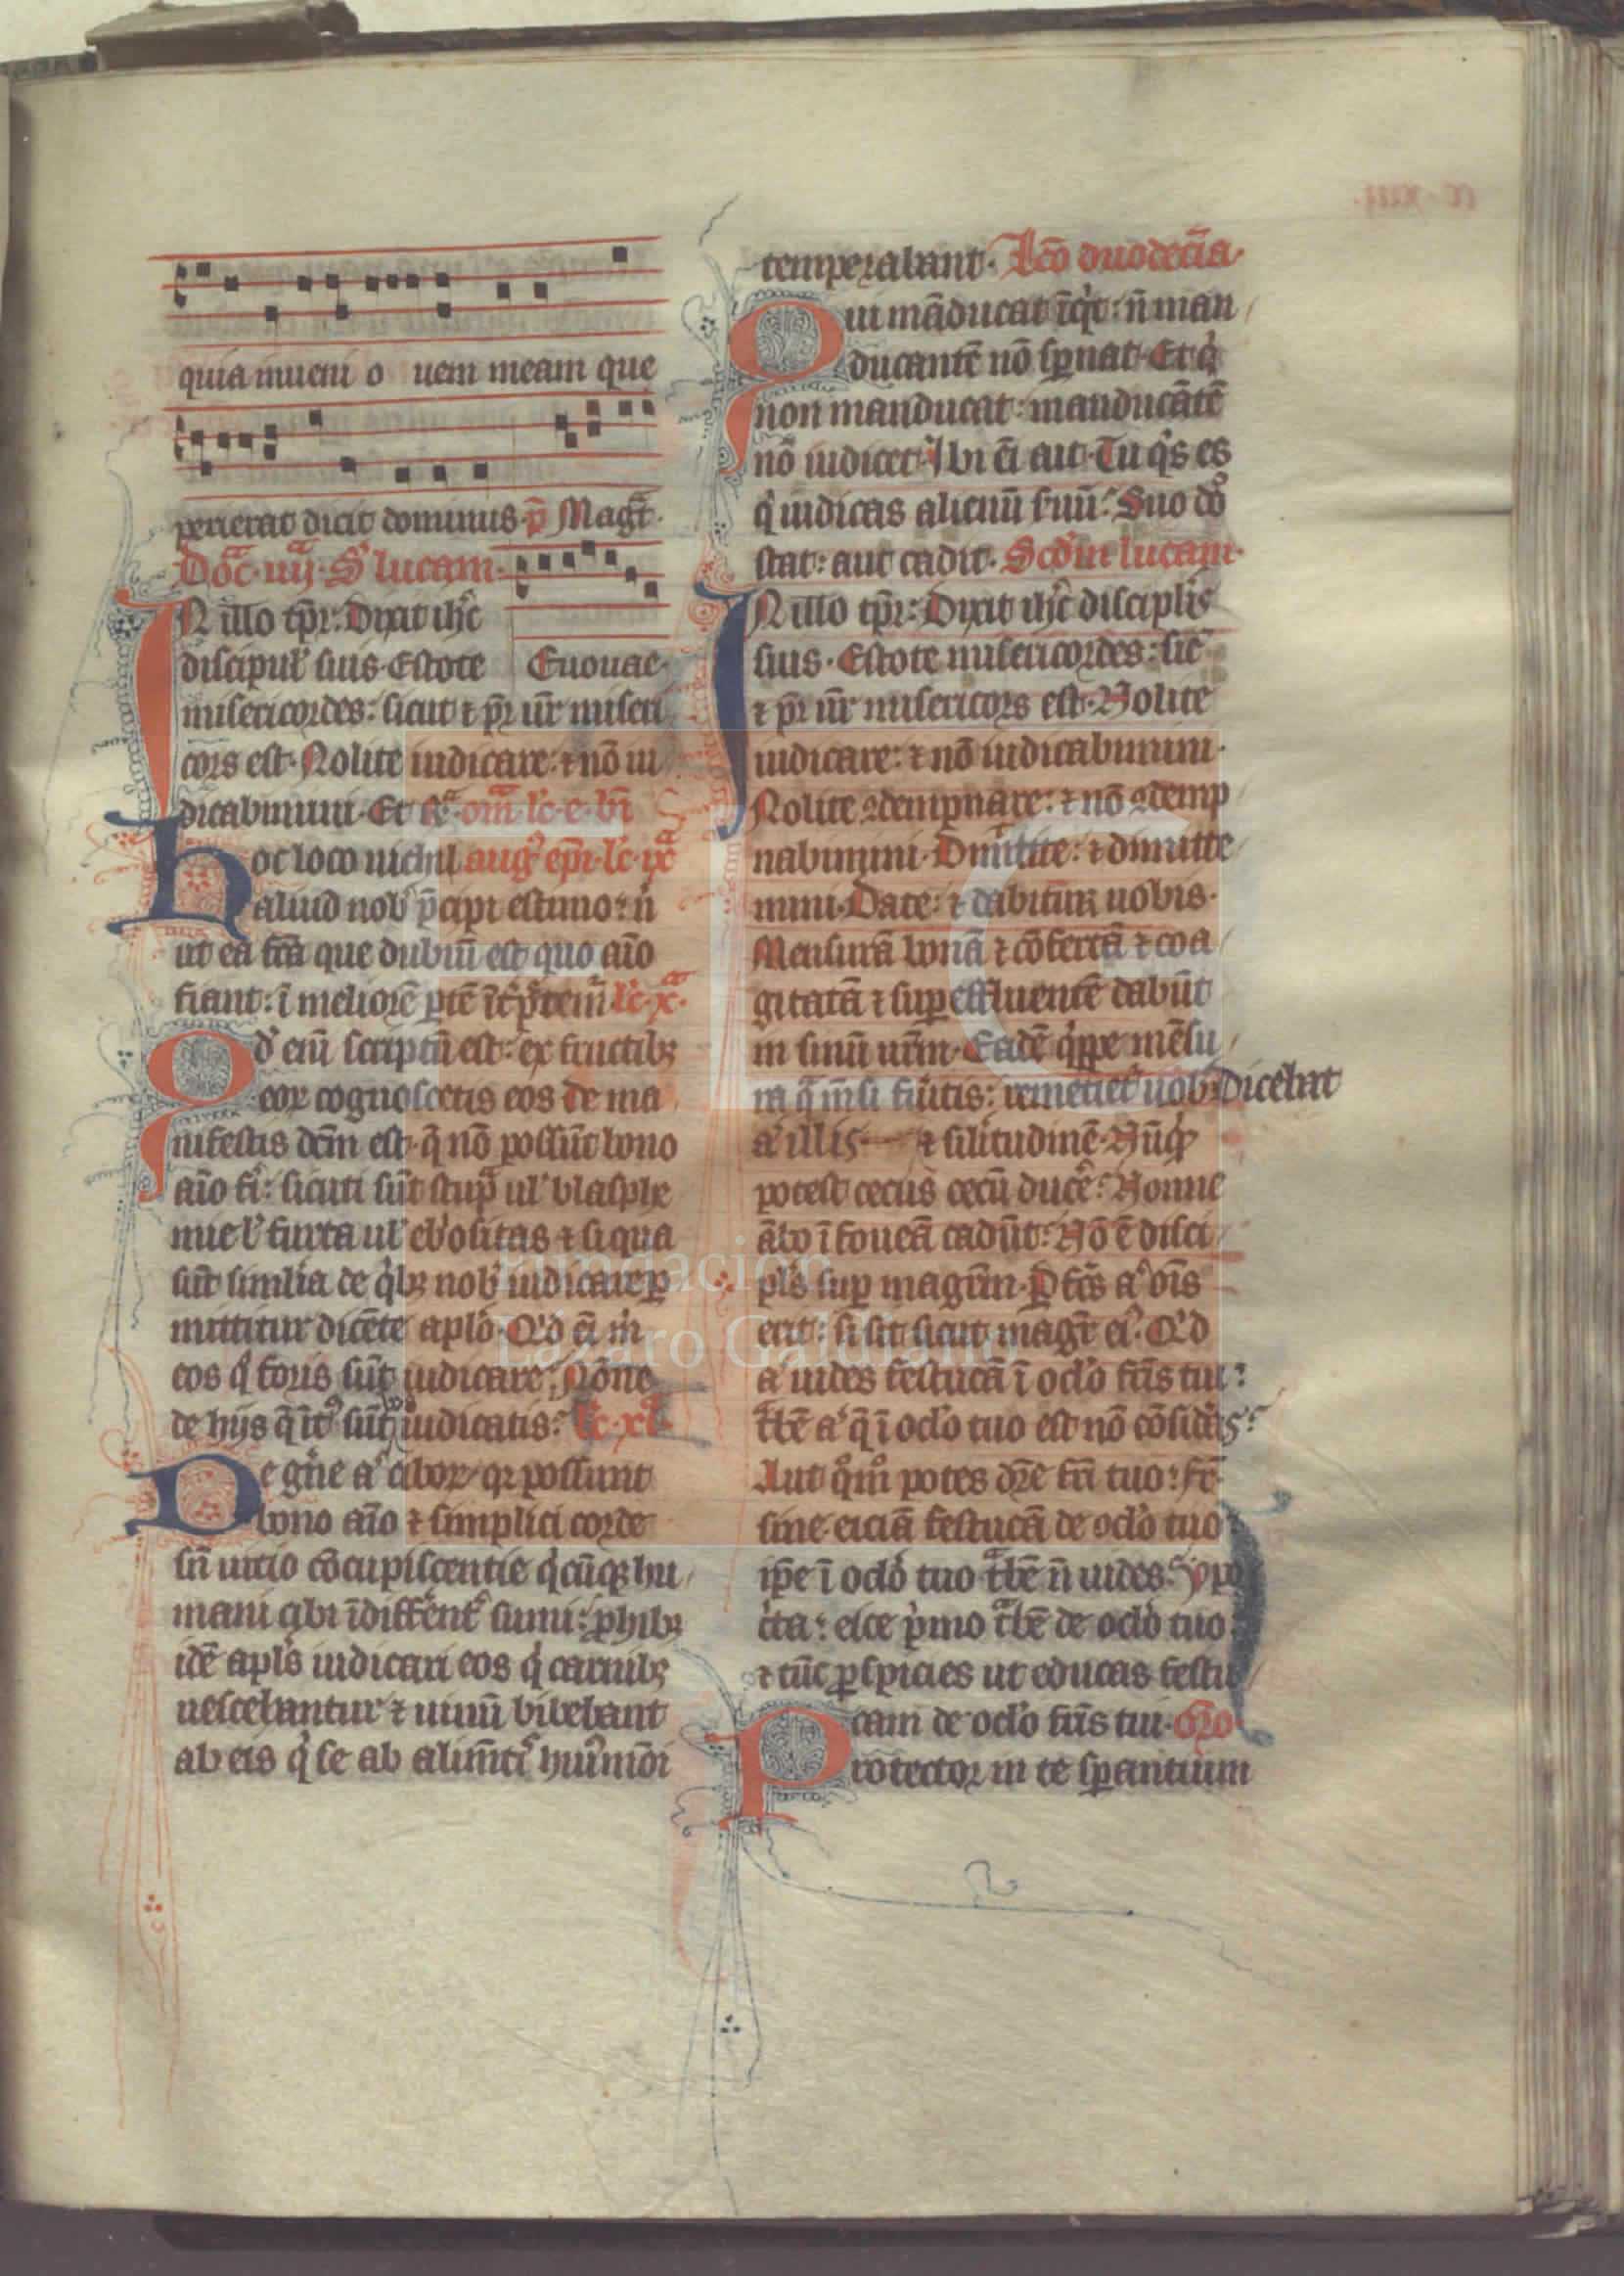 quia inueni o uem meam que
perierat dicit dominus. p̄ Magt̄.
Doc̄ iiij. S' lucam.
IN illo tp̄r: Dixit ihc̄
discipul' suis. Estote Euouae.
misericordes: sicut ⁊ pr̄ ur̄ miseri
cors est. Nolite iudicare: ⁊ nō iu
dicabimini. Et rł̄. om̄ł. lc̄. e. bī
hoc loco nichil aug' ep̄i. lc̄. ix
aliud nob' p̄cipi estimo: n
ut ea fc̄a que dubiū est quo aīo
fiant: ī meliorē ptē īt'pretem' lc̄. x.
Qd' eni scriptū est: ex fructibꝫ
eoꝝ cognoscetis eos de ma
nifestis dc̄m est. q̄ nō possūt bono
aīo fi': sicuti sūt stupa ul' blasphe
mie l' furta ul' ebositas ⁊ si qua
sūt similia de qibꝫ nob' iudicare ꝑ
mittitur dicēte apl'o. Qid ei m
eos qi foris sūt iudicare. Nōne
de hijs q̄ īt' sūt uos iudicatis: lc̄. xi.
De gn̄e a' ciboꝝ qꝛ possunt
bono aīo ⁊ simplici corde
sn̄ uitio cōcupiscentie qicūqꝫ hu
mani cibi īdiffer̄ent' sumi: ꝓhibꝫ
idē apl's iudicari eos qi carnibꝫ
uescebantur ⁊ uinū bibebant
ab eis qi se ab alim̄ti' hui'mōi
temperabant. Lc̄o duodecīa.
Qui māducat īqit: n̄ man
ducantē nō sꝑnat. Et qi
non manducat: manducātē
nō iudicet. Ibi ei ait. Tu qis es
qi iudicas alienū suū: Suo dō
stat: aut cadit. Scd'm lucam.
IN illo tp̄r: Dixit ihc̄ discipl'is
suis. Estote misericordes: sic
⁊ pr̄ ur̄ misericors est. Nolite
iudicare: ⁊ nō iudicabimini.
Nolite ꝯdempnare: ⁊ nō ꝯdemp
nabimini. Dimitite: ⁊ dimitte
mini. Date: ⁊ dabitur uobis.
Mensurā bonā ⁊ cōfertā ⁊ coa
gitatā ⁊ suꝑeffluentē dabūt
in sinū ur̄m. Eadē qippe mēsu
ra q̄ m̄si fu'itis: remetiet' uob' Dicebat
a' illis ⁊ sil'itudinē. Nūqid
potest cecus cecū duce': Nonne
ābo ī foueā cadūt: Nō ē disci
pl's sup magr̄m. P̄fc̄s a' oīs
erit: si sit sicut magr̄ ei'. Qid
a' uides festucā ī oclo fr̄is tui:
tbē a' q̄ ī oclo tuo est nō cōsid'as:
Aut qōmō potes dr̄e fr̄i tuo: fr̄
sine eiciā festucā de oclo tuo
ip̄e ī oclo tuo tbē n̄ uides: ypo
cita: eice pimo tbē de oclo tuo
⁊ tūc ꝑspicies ut educas festu
cam de oclo fr̄is tui. Oro
Protector in te sꝑantium
Fundación
Lázaro Galdiano